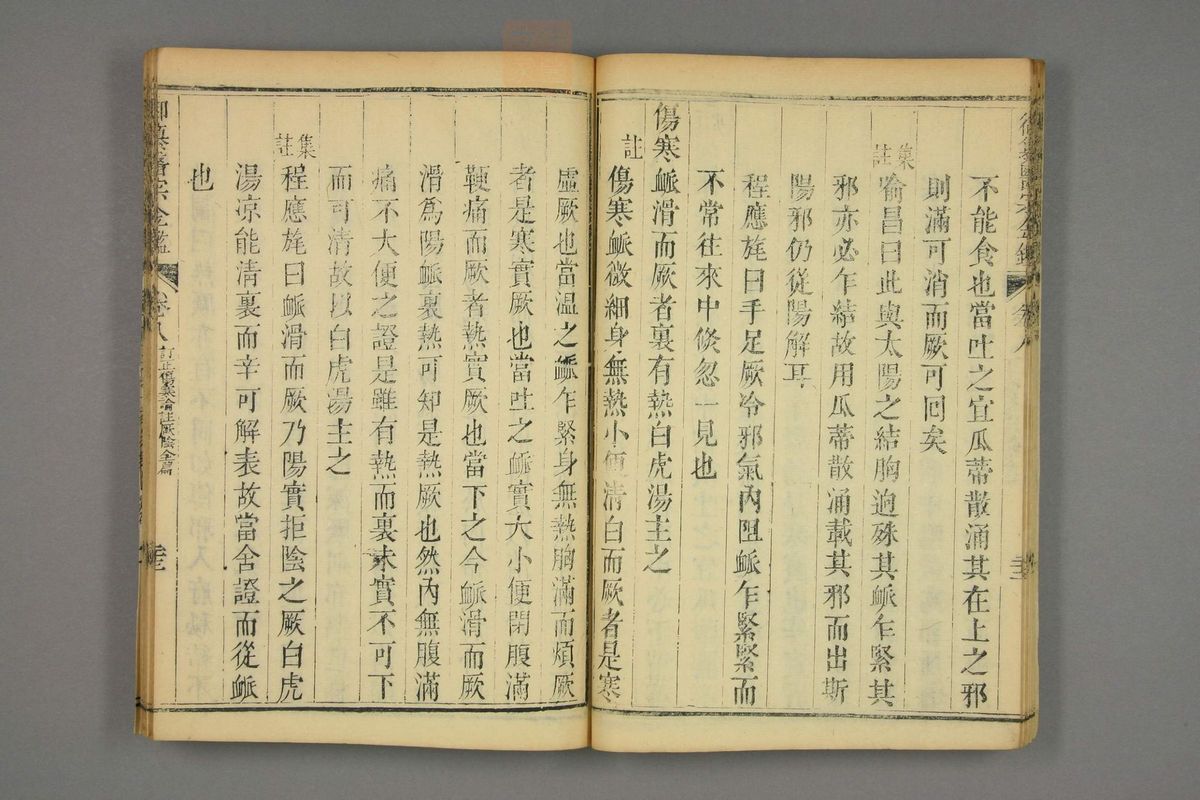 不能食也當吐之宜瓜蒂散涌其在上之邪
則滿可消而厥可回矣
集註
喻昌曰此與太陽之結胸逈殊其脈乍緊其
邪亦必乍結故用瓜蒂散涌載其邪而出斯
陽邪仍從陽解耳
程應旄曰手足厥冷邪氣內阻脈乍緊緊而
不常往來中倐忽一見也
傷寒脈滑而厥者裏有熱白虎湯主之
註
傷寒脈微細身無熱小便清白而厥者是寒
虛厥也當温之脈乍緊身無熱胸滿而煩厥
者是寒實厥也當吐之脈實大小便閉腹滿
鞕痛而厥者熱實厥也當下之今脈滑而厥
滑爲陽脈裏熱可知是熱厥也然內無腹滿
痛不大便之證是雖有熱而裏未實不可下
而可清故以白虎湯主之
集註
程應旄曰脈滑而厥乃陽實拒陰之厥白虎
湯凉能清裏而辛可解表故當舍證而從脈
也
御纂醫宗金鑑
卷八
訂正傷寒論註厥陰全篇